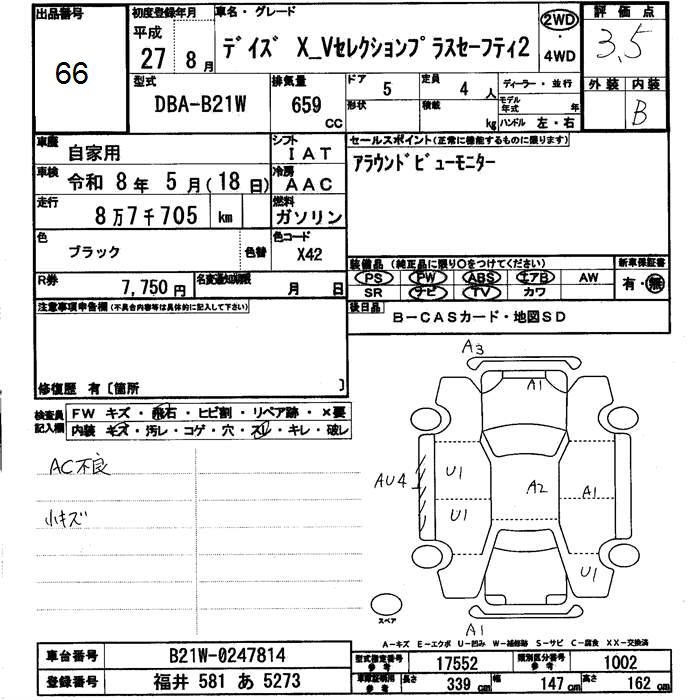 出品番号
66
初度登録年月
平成
27年 8月
車名・グレード
デイズ X_Vセレクションプラスセーフティ2
2WD
・
4WD
評価点
3.5
外装 内装
B
型式
DBA-B21W
排気量
659
CC
ドア
5
定員
4 人
形状
積載
kg
ディーラー・並行
モデル年式 年
ハンドル 左・右
車歴
自家用
シフト
IAT
車検
令和 8年 5月(18日)
冷房
AAC
走行
8万7千705 km
燃料
ガソリン
色
ブラック
色替
色コード
X42
R券
7,750円
名変通知期限
月 日
セールスポイント(正常に機能するものに限ります)
アラウンドビューモニター
装備品 (純正品に限り○をつけてください)
PS PW ABS エアB AW
SR ナビ TV カワ
新車保証書
有・無
後日品
B-CASカード・地図SD
注意事項申告欄(不具合内容等は具体的に記入して下さい)
修復歴 有〔箇所 〕
検査員記入欄
FW キズ・飛石・ヒビ割・リペア跡・×要
内装 キズ・汚レ・コゲ・穴・スレ・キレ・破レ
AC不良
小キズ
A3
A1
U1
AU4
A2
A1
U1
U1
A1
スペア
A-キズ E-エクボ U-凹み W-補修跡 S-サビ C-腐食 XX-交換済
車台番号
B21W-0247814
登録番号
福井 581 あ 5273
型式指定番号
参考
17552
類別区分番号
参考
1002
車庫証明用
参考
長さ
339 cm
幅
147 cm
高さ
162 cm